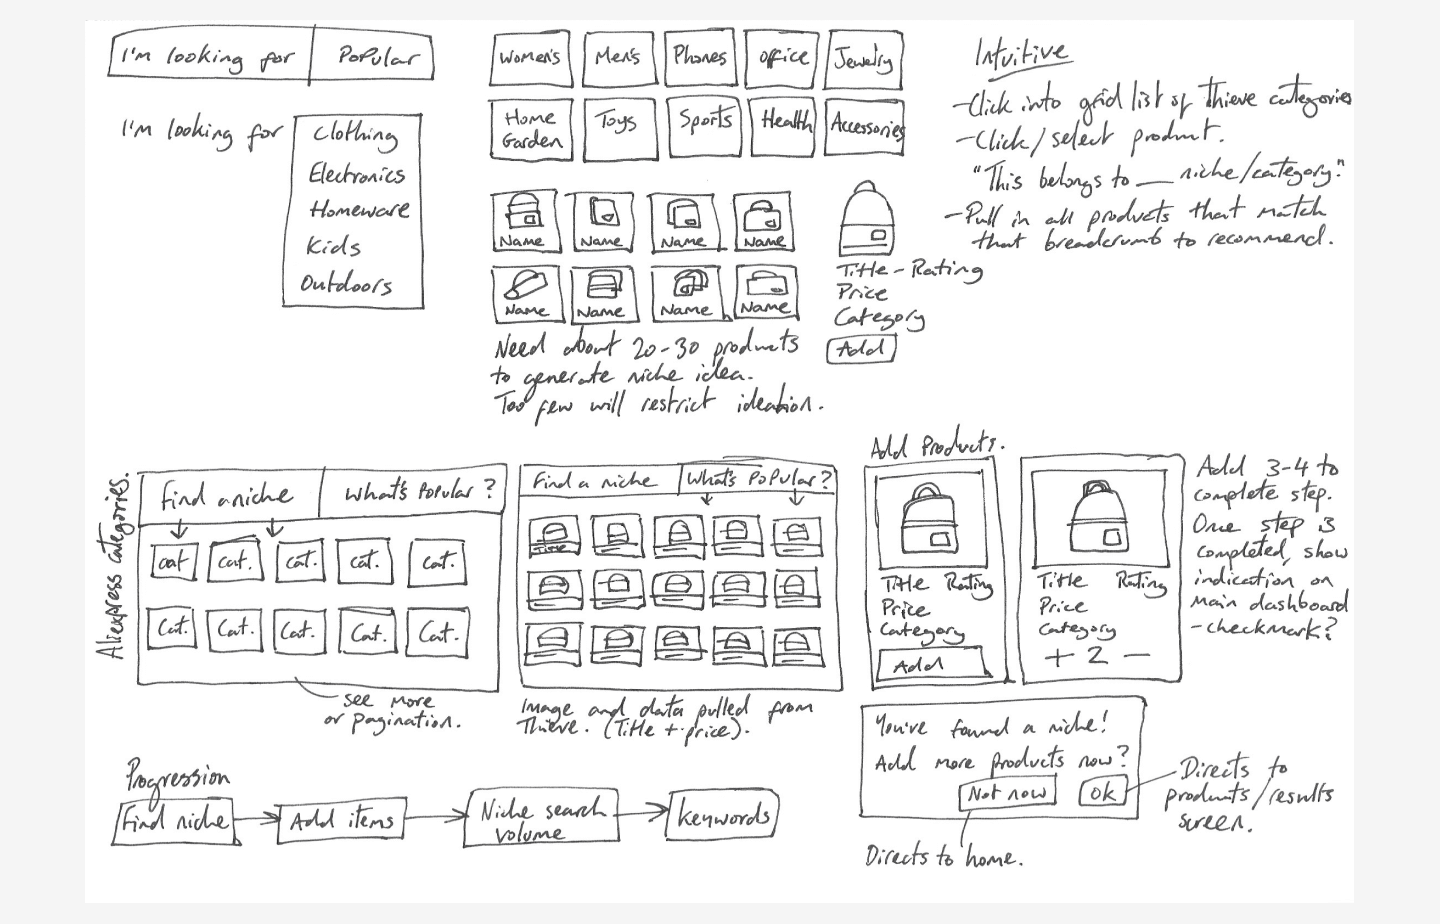 I'm looking for
Popular
I'm looking for
Clothing
Electronics
Homeware
Kids
Outdoors
Women's
Men's
Phones
Office
Jewelry
Home
Garden
Toys
Sports
Health
Accessories
Name
Name
Name
Name
Name
Name
Name
Name
Need about 20-30 products
to generate niche idea.
Too few will restrict ideation.
Title - Rating
Price
Category
Add
Intuitive
- Click into grid list of Thieve categories
- Click/select product.
"This belongs to ___ niche/category."
- Pull in all products that match
that breadcrumb to recommend.
Aliexpress categories.
Find a niche
What's Popular?
Cat
Cat.
Cat.
Cat.
Cat.
Cat.
Cat.
Cat.
Cat.
Cat.
see more
or pagination.
Find a niche
What's Popular?
Title
Image and data pulled from
Thieve. (Title + price).
Add Products.
Title Rating
Price
Category
Add
Title Rating
Price
Category
+ 2 -
Add 3-4 to
complete step.
One step is
completed, show
indication, on
main dashboard
- checkmark?
You've found a niche!
Add more products now?
Not now
Ok
Directs to
products/results
screen.
Directs to home.
Progression
Find niche
Add items
Niche search
volume
Keywords